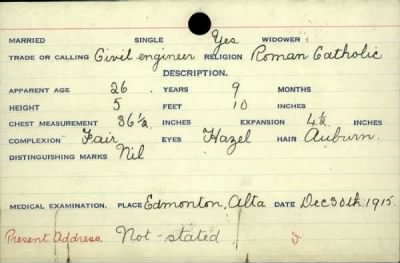 MARRIED SINGLE Yes WIDOWER
TRADE OR CALLING Civil engineer RELIGION Roman Catholic
DESCRIPTION.
APPARENT AGE 26 YEARS 9 MONTHS
HEIGHT 5 FEET 10 INCHES
CHEST MEASUREMENT 36½ INCHES EXPANSION 4½ INCHES
COMPLEXION Fair EYES Hazel HAIR Auburn.
DISTINGUISHING MARKS Nil
MEDICAL EXAMINATION. PLACE Edmonton, Alta DATE Dec 30th, 1915.
Present Address. Not-stated